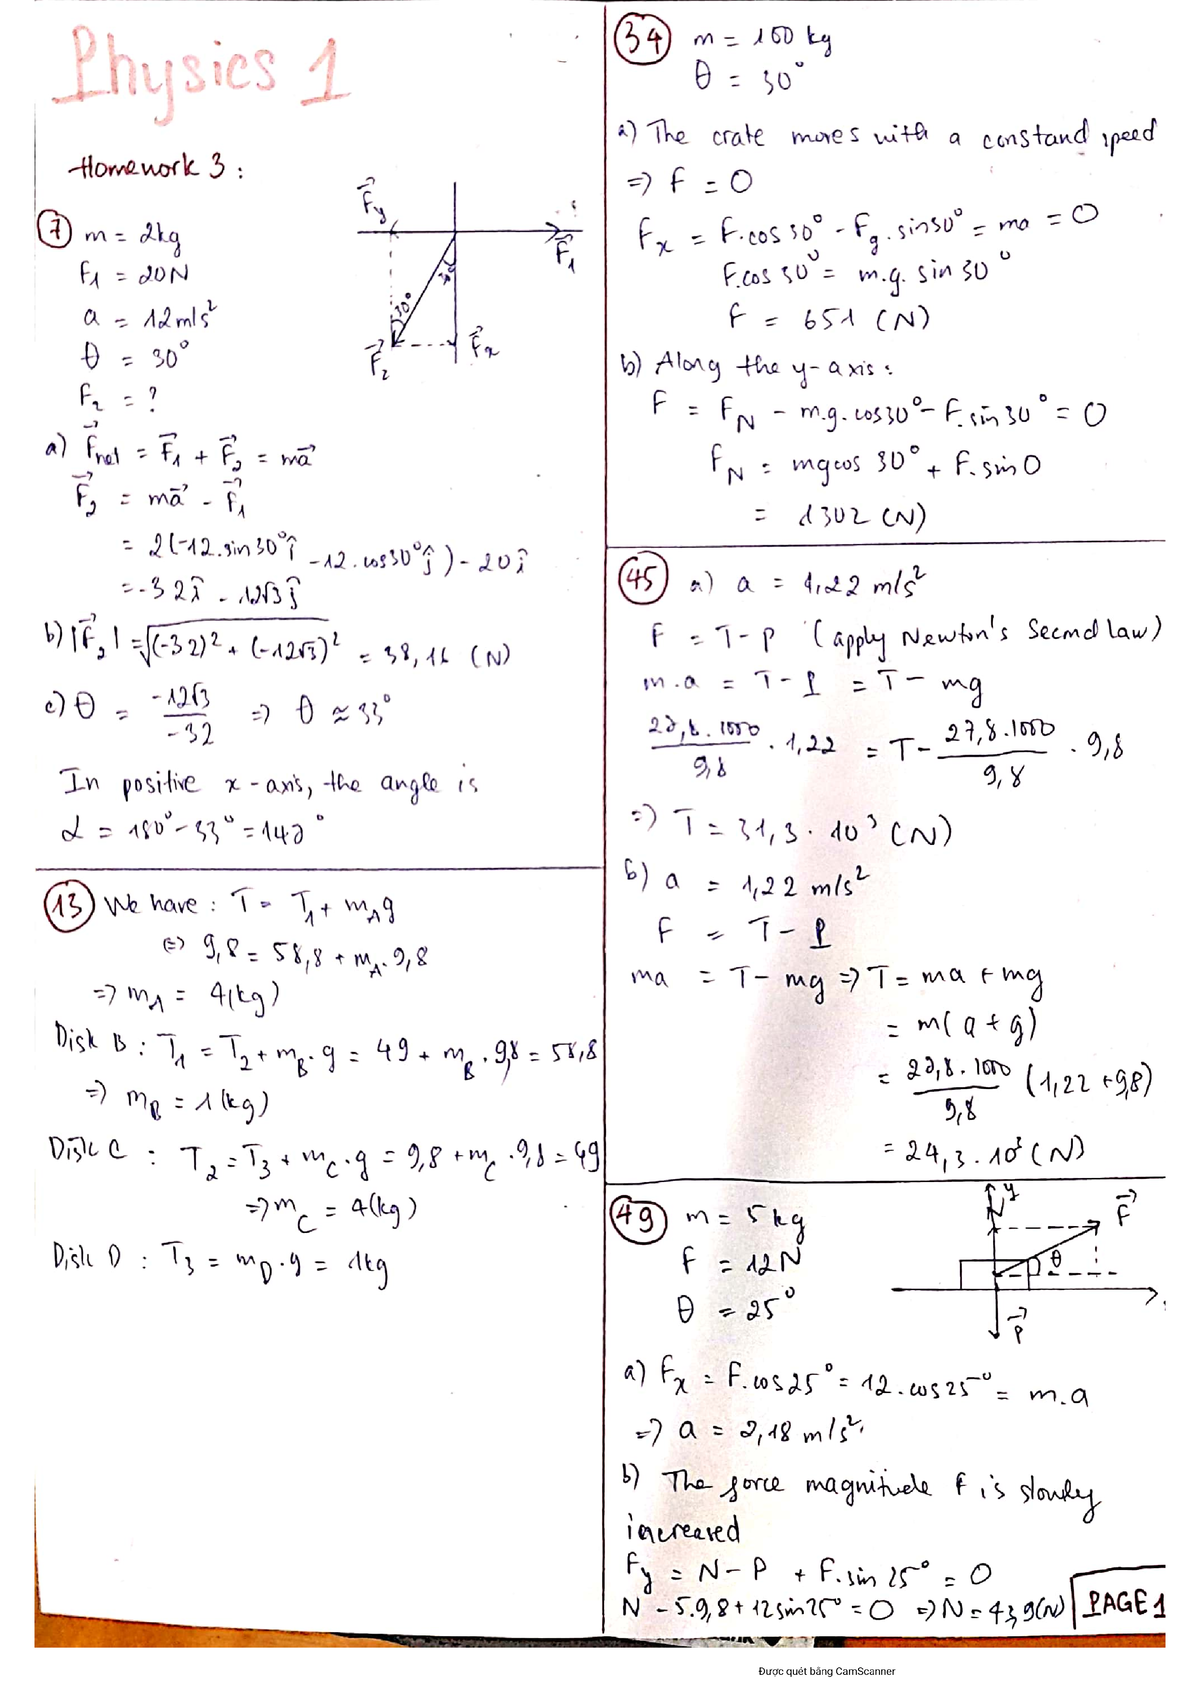 Physics 1
Homework 3 :
7
m = 2kg
F1 = 20N
a = 12m/s²
θ = 30°
F2 = ?
Fy
F1
30°
30°
F2
Fx
a) Fnet = F1 + F2 = ma
F2 = ma - F1
= 2(-12.sin30°î - 12.cos30°ĵ) - 20î
= -32î - 12√3ĵ
b) |F2| = √(-32)² + (-12√3)² = 38,16 (N)
c) θ = -12√3 / -32 => θ ≈ 33°
In positive x-axis, the angle is
α = 180° - 33° = 147°
13 We have : T = T1 + mAg
(=) 9,8 = 58,8 + mA.9,8
=> mA = 4(kg)
Disk B : T1 = T2 + mB.g = 49 + mB.9,8 = 58,8
=> mB = 1(kg)
Disk C : T2 = T3 + mC.g = 9,8 + mC.9,8 = 49
=> mC = 4(kg)
Disk D : T3 = mD.g = 1kg
34 m = 100 kg
θ = 30°
a) The crate moves with a constand speed
=> F = 0
Fx = F.cos30° - Fg.sin30° = ma = 0
F.cos30° = m.g.sin30°
F = 651 (N)
b) Along the y-axis :
F = FN - m.g.cos30° - F.sin30° = 0
FN = mgcos 30° + F.sinθ
= 1302 (N)
45 a) a = 1,22 m/s²
F = T - P (apply Newton's Second law)
m.a = T - P = T - mg
27,8.1000 / 9,8 . 1,22 = T - 27,8.1000 / 9,8 . 9,8
=) T = 31,3.10³ (N)
b) a = 1,22 m/s²
F = T - P
ma = T - mg => T = ma + mg
= m(a + g)
= 27,8.1000 / 9,8 (1,22 + 9,8)
= 24,3.10³ (N)
49 m = 5kg
F = 12N
θ = 25°
N
y
F
θ
P
a) Fx = F.cos25° = 12.cos25° = m.a
=> a = 2,18 m/s²
b) The force magnitude F is slowly
increased
Fy = N - P + F.sin25° = 0
N - 5.9,8 + 12sin25° = 0 => N = 43,9(N)
PAGE 1
Được quét bằng CamScanner